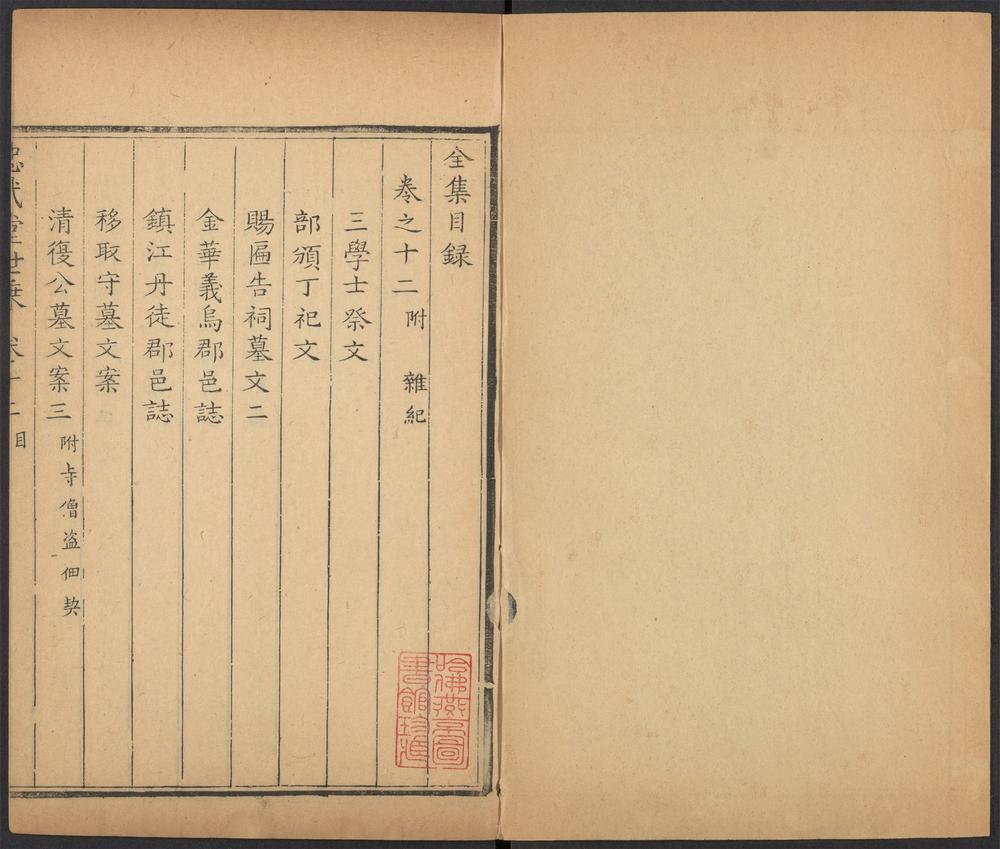 全集目録
卷之十二 附 雜紀
三學士祭文
部頒丁祀文
賜匾告祠墓文二
金華義烏郡邑誌
鎮江丹徒郡邑誌
移取守墓文案
清復公墓文案三 附寺僧盜佃契
忠武堂世乘 卷十二 目
哈佛燕
圖書館珍藏